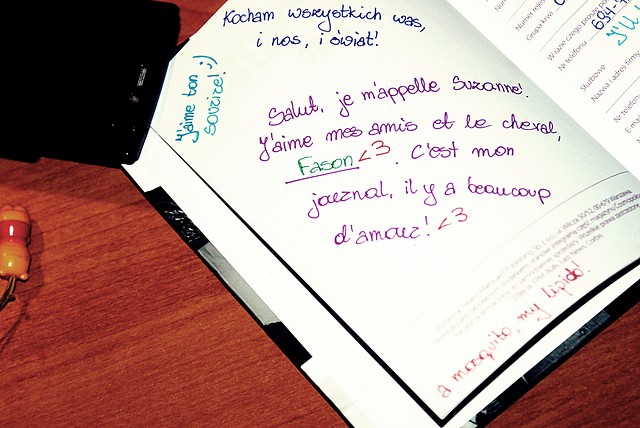 Kocham wszystkich was,
i nas, i świat!
J'aime ton
sourire! ;)
Salut, je m'appelle Suzanne!
J'aime mes amis et le cheval,
Fason <3. C'est mon
journal, il y a beaucoup
d'amour! <3
a mosquito, my lipido!
Numer reje
Grupa krwi
W razie czego proszę po
Nr telefonu
694-7
Służbowe
Nazwa i adres firmy
Nr telefon
E-mai